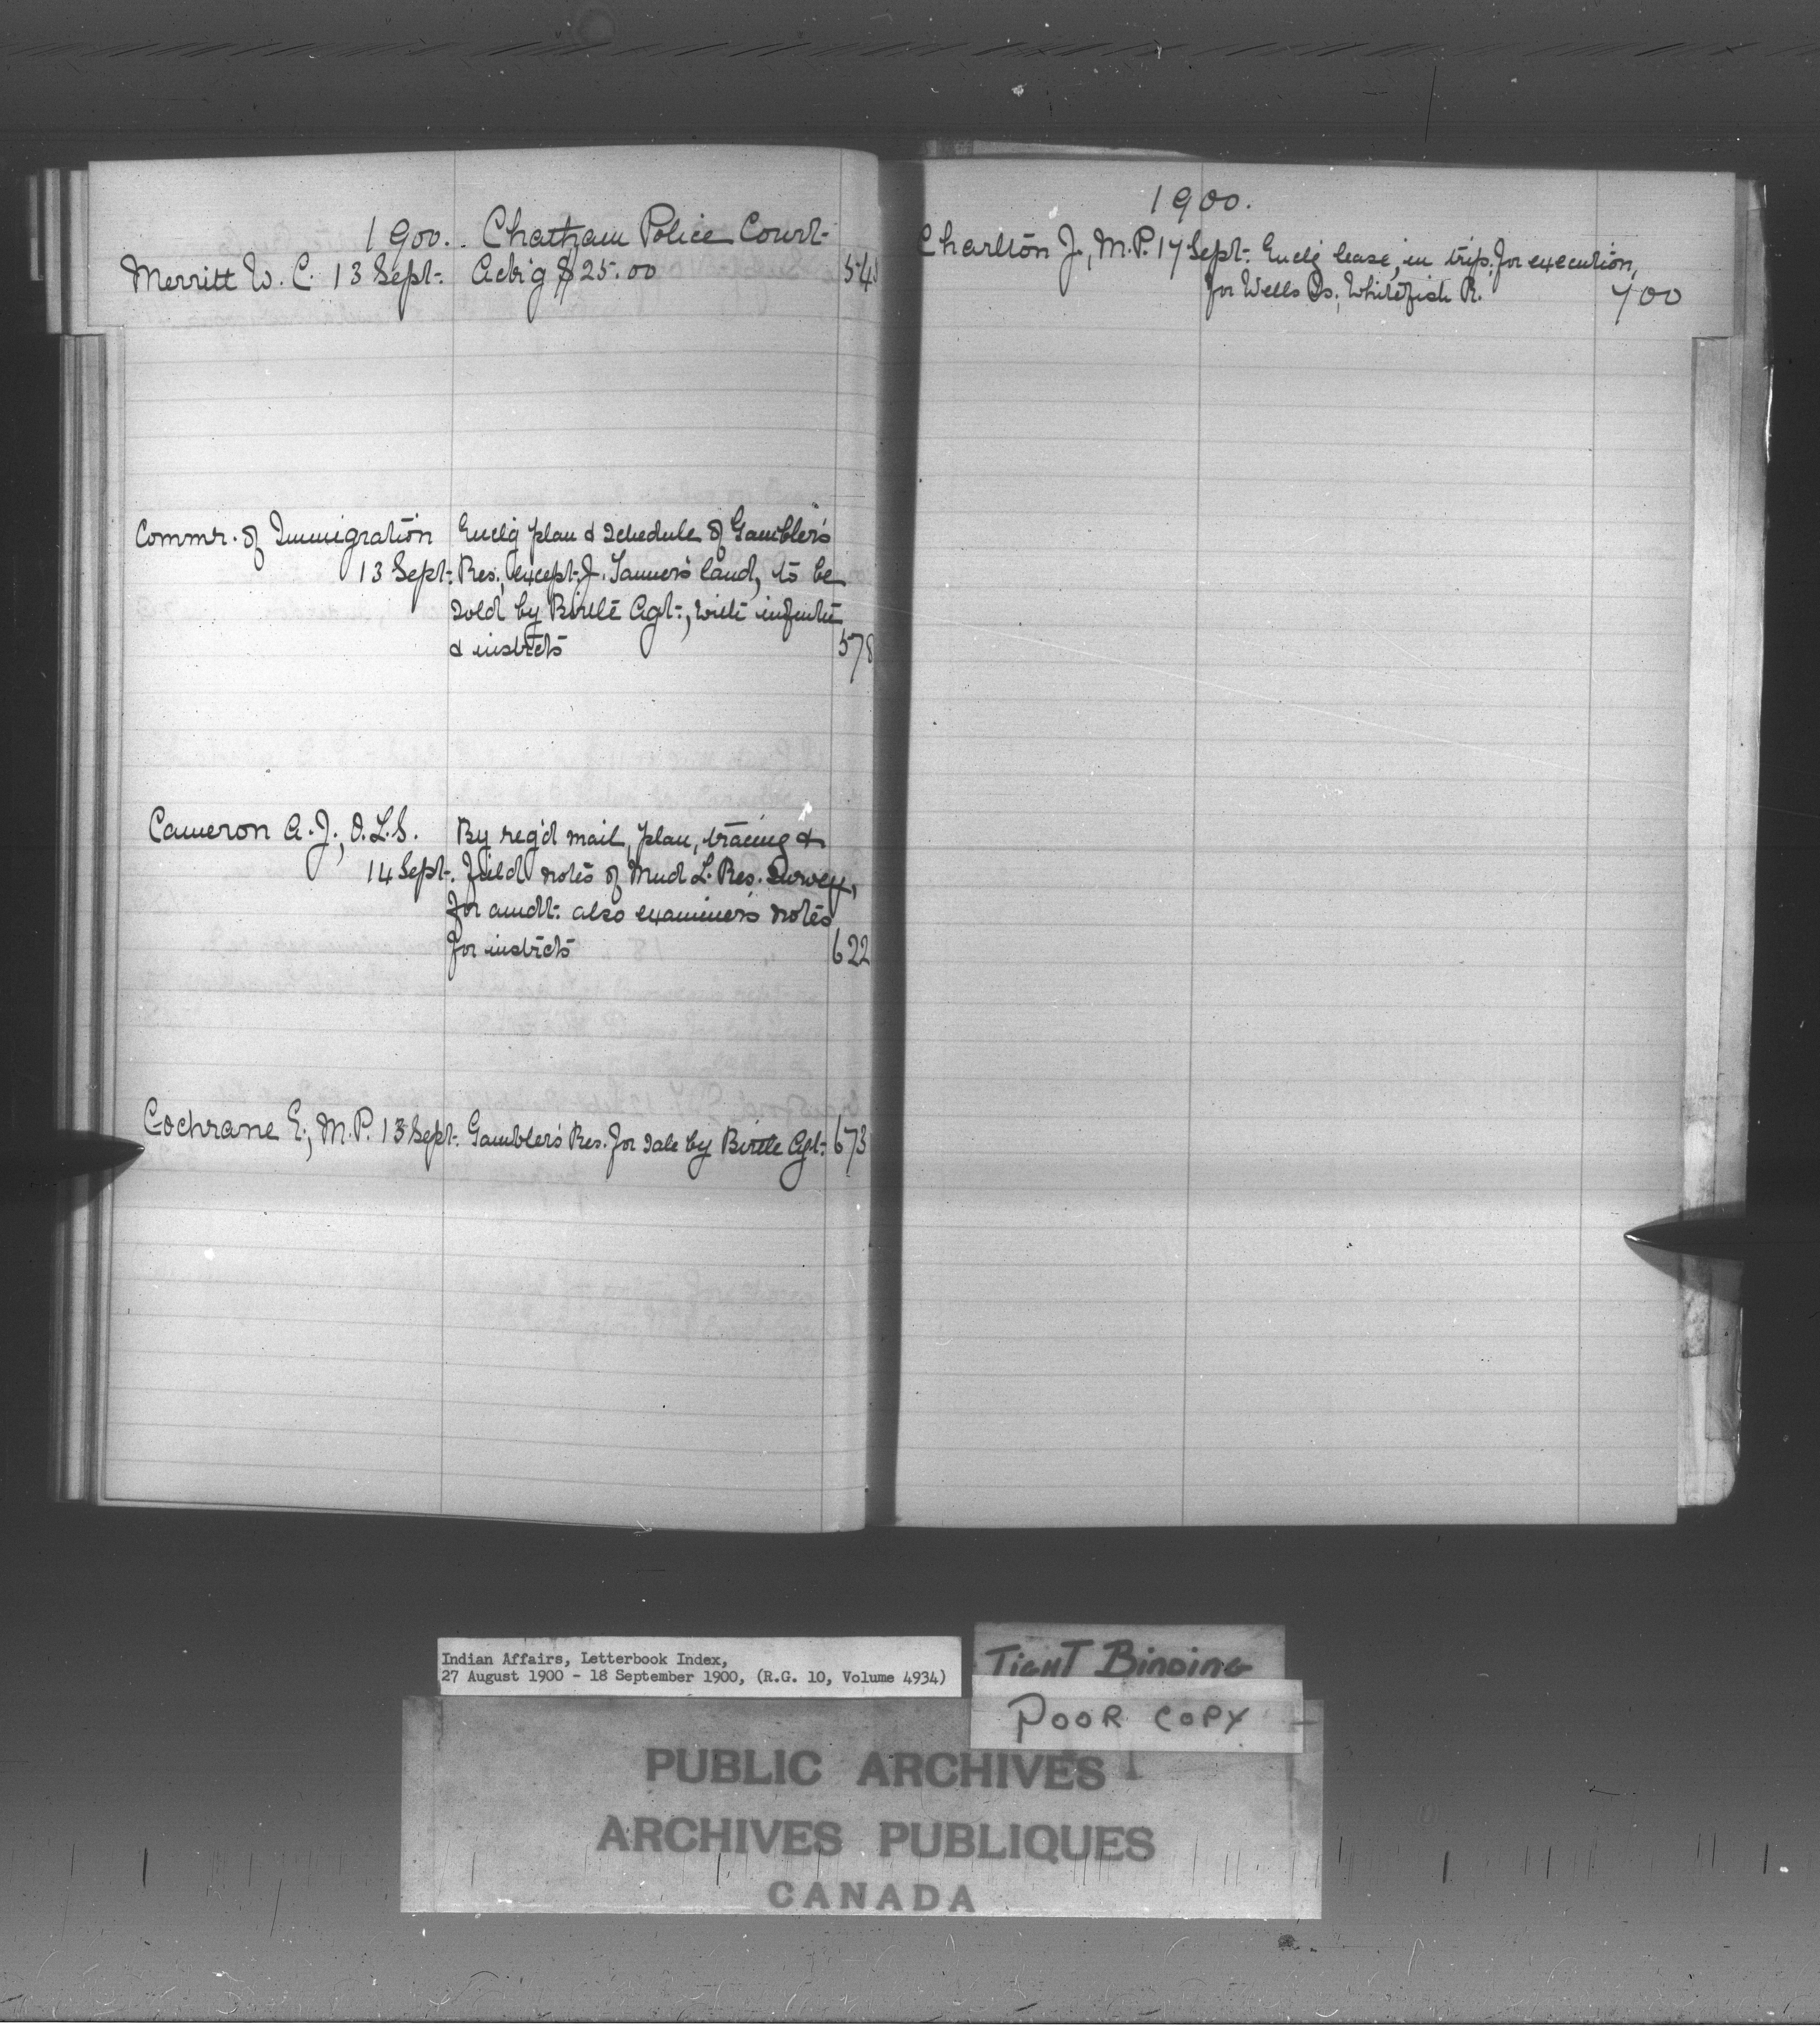 1900. Chatham Police Court-
Merritt W. C. 13 Sept. Ack'g $25.00 545
Commr. of Immigration Enclg plan & schedule of Gambler's
13 Sept. Res., except J. Tanner's land, to be
sold by Birtle Agt., with
& instrcts 578
Cameron A. J., O.L.S. By reg'd mail, plan, tracing &
14 Sept. field notes of Mud L. Res. Survey,
for amdt. also examiner's notes
for instrcts 622
Cochrane E., M.P. 13 Sept. Gambler's Res. for sale by Birtle Agt. 673
1900.
Charlton J., M.P. 17 Sept. Enclg lease, in trip. for execution,
for Wells Is., Whitefish R. 700
Indian Affairs, Letterbook Index,
27 August 1900 - 18 September 1900, (R.G. 10, Volume 4934)
TIGHT BINDING
POOR COPY
PUBLIC ARCHIVES
ARCHIVES PUBLIQUES
CANADA